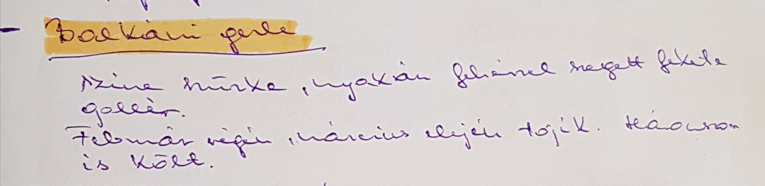 - Balkáni gerle
Színe szürke, nyakán fehérrel szegett fekete
gallér.
Február végén, március elején tojik. Háromszor
is költ.